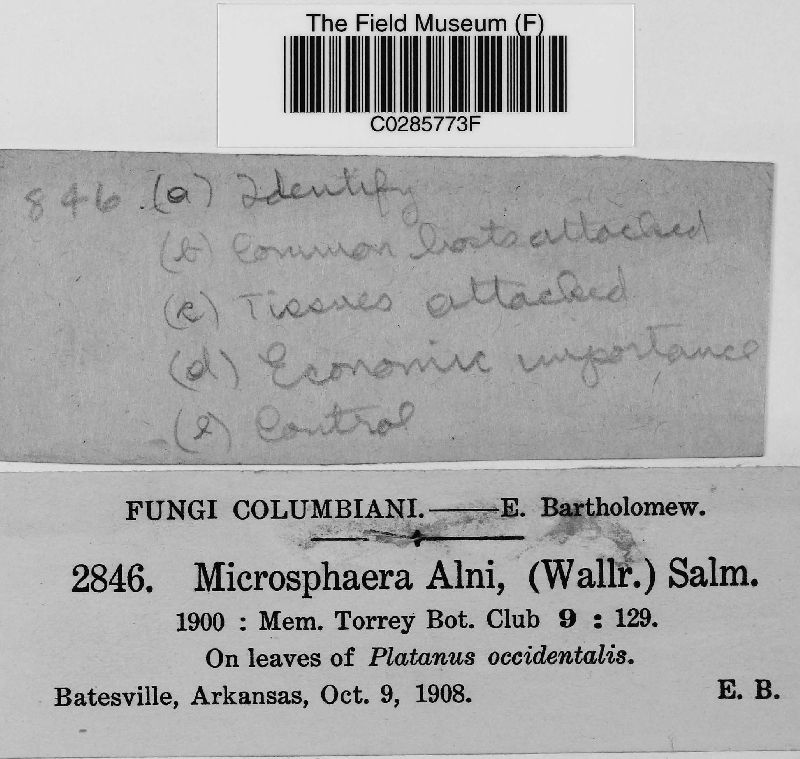 The Field Museum (F)
C0285773F
846 (a) Identify
(b) Common hosts attacked
(c) Tissues attacked
(d) Economic importance
(e) Control
FUNGI COLUMBIANI.——E. Bartholomew.
2846. Microsphaera Alni, (Wallr.) Salm.
1900 : Mem. Torrey Bot. Club 9 : 129.
On leaves of Platanus occidentalis.
Batesville, Arkansas, Oct. 9, 1908. E. B.